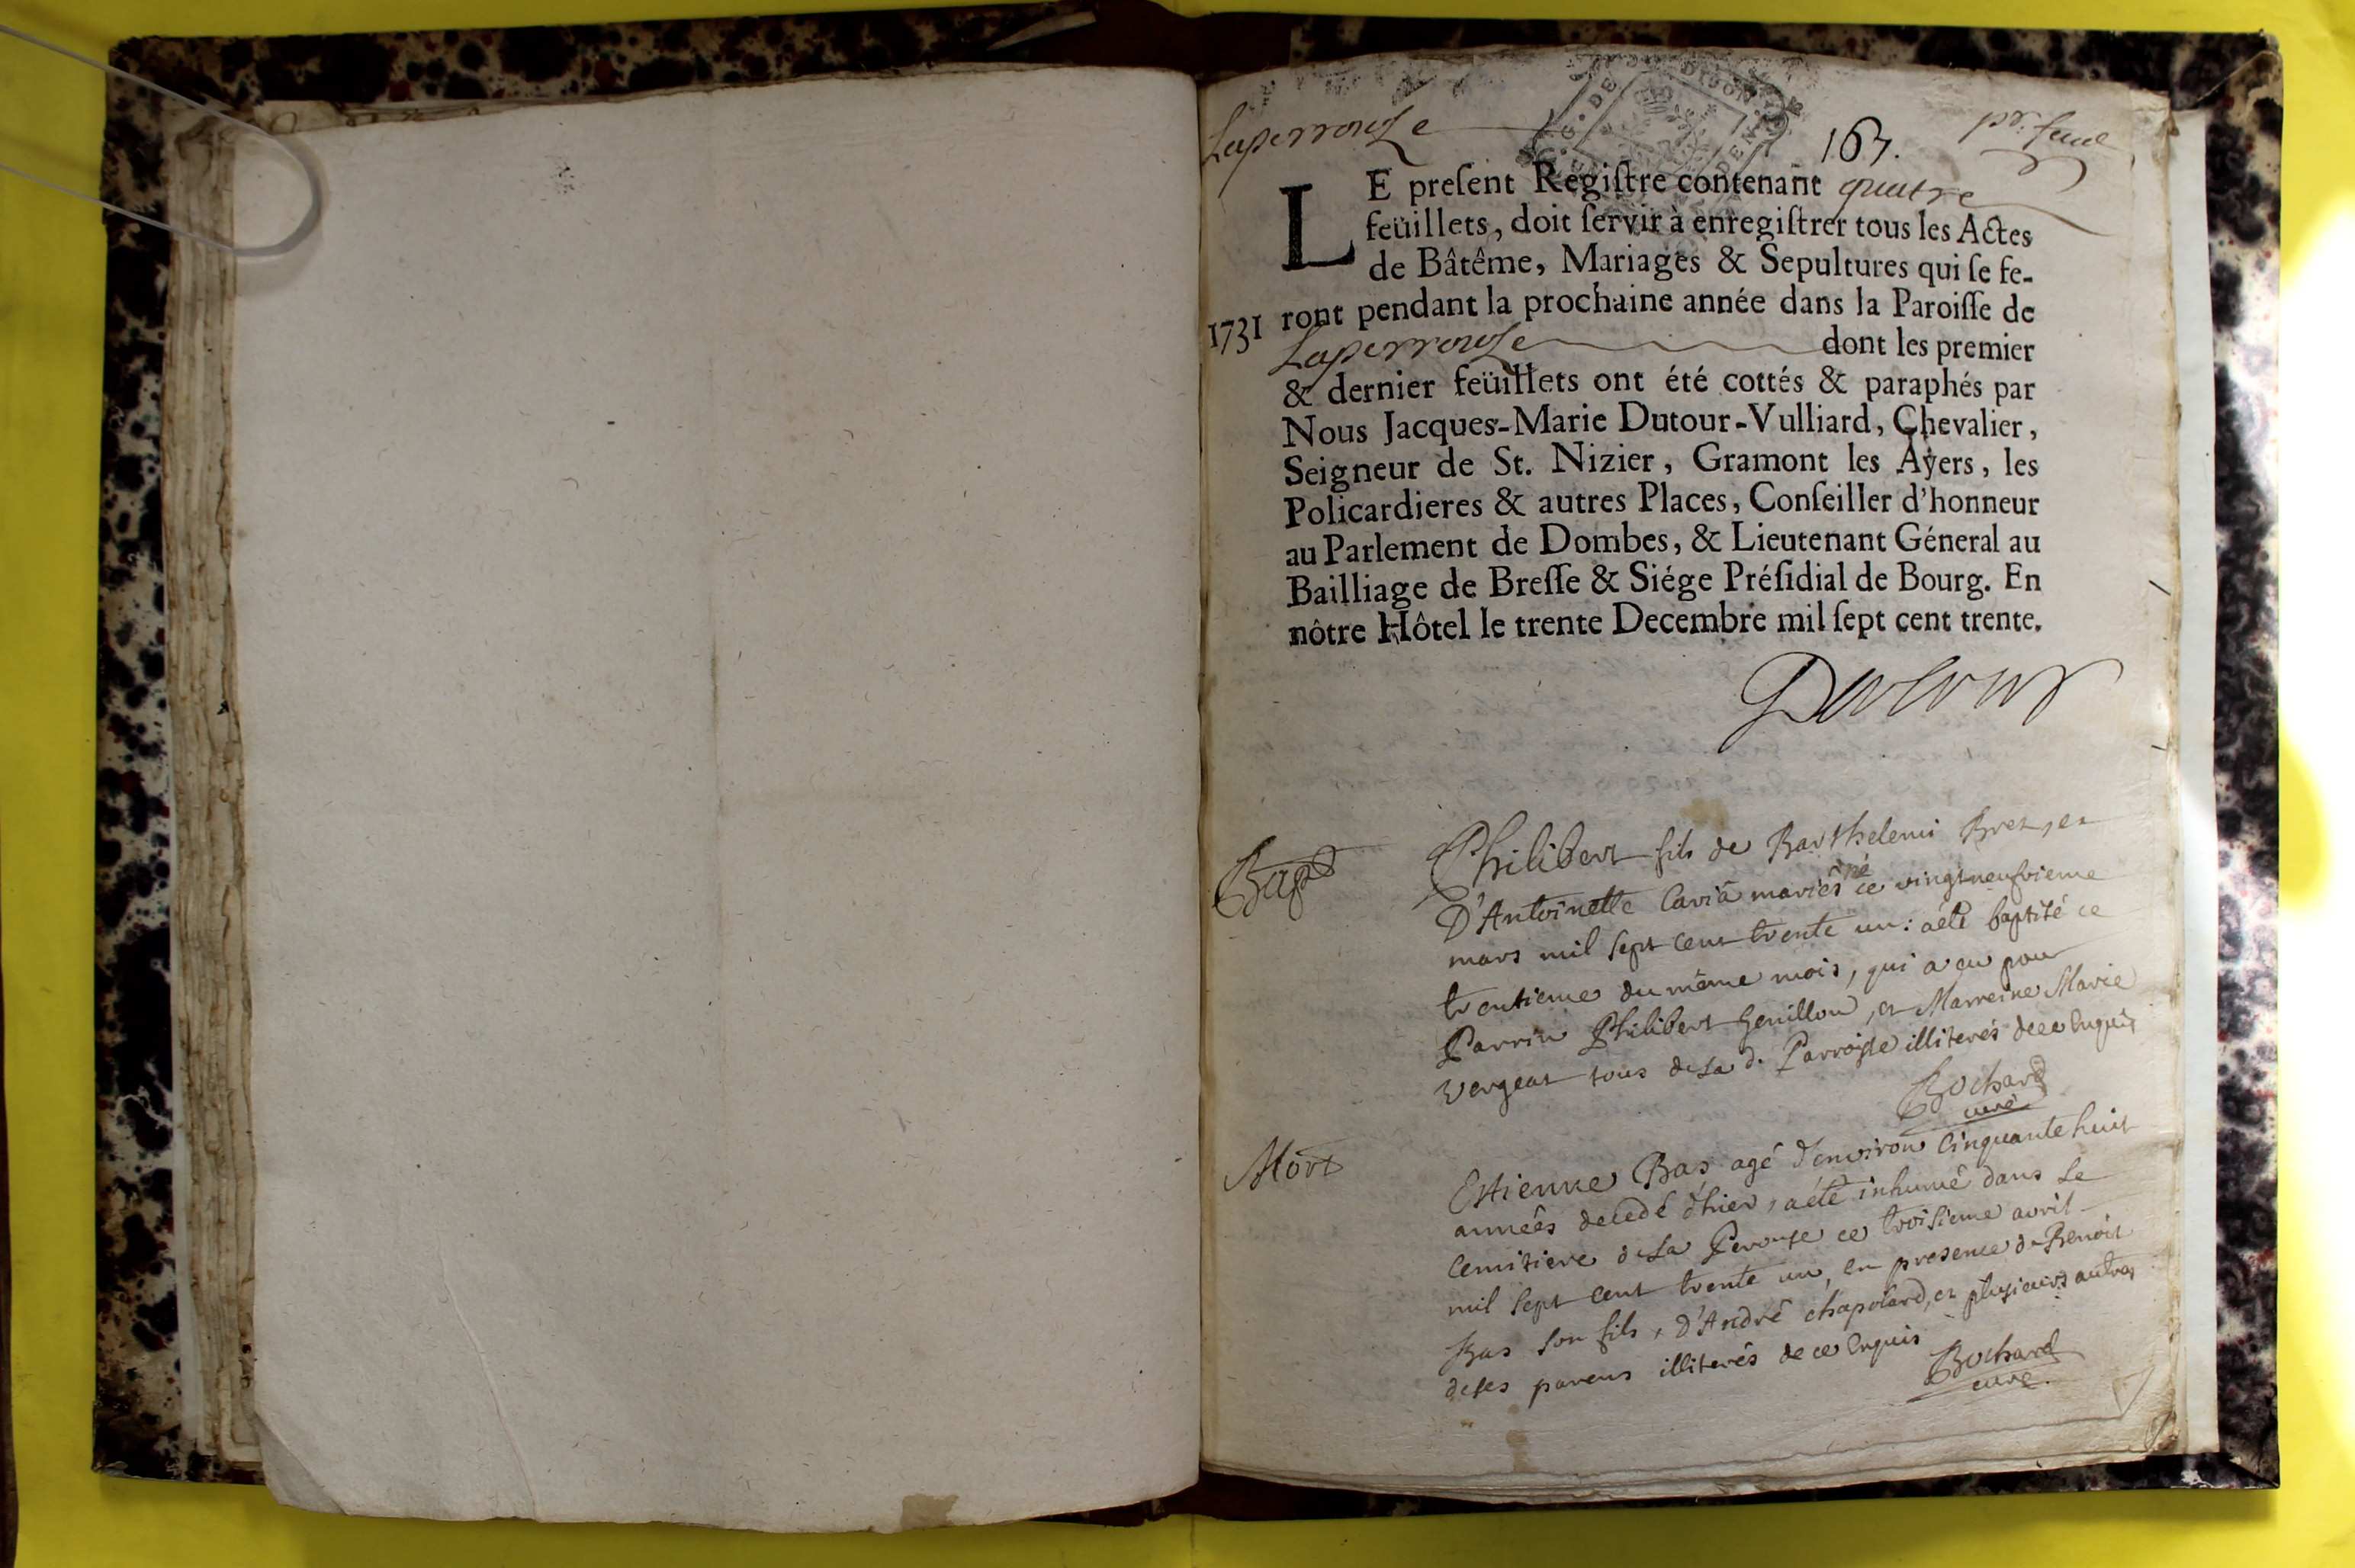 Laperrouse
167.
LE preſent Regiſtre contenant quatre
feüillets, doit ſervir à enregiſtrer tous les Actes
de Bâtême, Mariages & Sepultures qui ſe fe-
1731 ront pendant la prochaine année dans la Paroiſſe de
Laperrouse dont les premier
& dernier feüillets ont été cottés & paraphés par
Nous Jacques-Marie Dutour-Vulliard, Chevalier,
Seigneur de St. Nizier, Gramont les Ayers, les
Policardieres & autres Places, Conſeiller d'honneur
au Parlement de Dombes, & Lieutenant Géneral au
Bailliage de Breſſe & Siége Préſidial de Bourg. En
nôtre Hôtel le trente Decembre mil ſept cent trente.
Dutour
Bapt
Philibert fils de Barthelemi Bret, et
D'Antoinette Cariá mariés né ce vingtneufvieme
mars mil sept cent trente un: aeté baptisé ce
trentieme du même mois, qui a eu pour
Parrin Philibert Genillon, et Marreine Marie
Vergeat tous de La d. Parroisse illiterés dece Enquis
Bochard
curé
Mort
Estienne Bas agé d'environ Cinquante huit
années decedé d'hier, aété inhumé dans Le
Cemitiere de La Perouse ce troisieme avril
mil sept cent trente un, en presence de Benoit
Bas son fils, D'André chapolard, et plusieurs autres
de ses parens illiterés de ce Enquis
Bochard
curé.